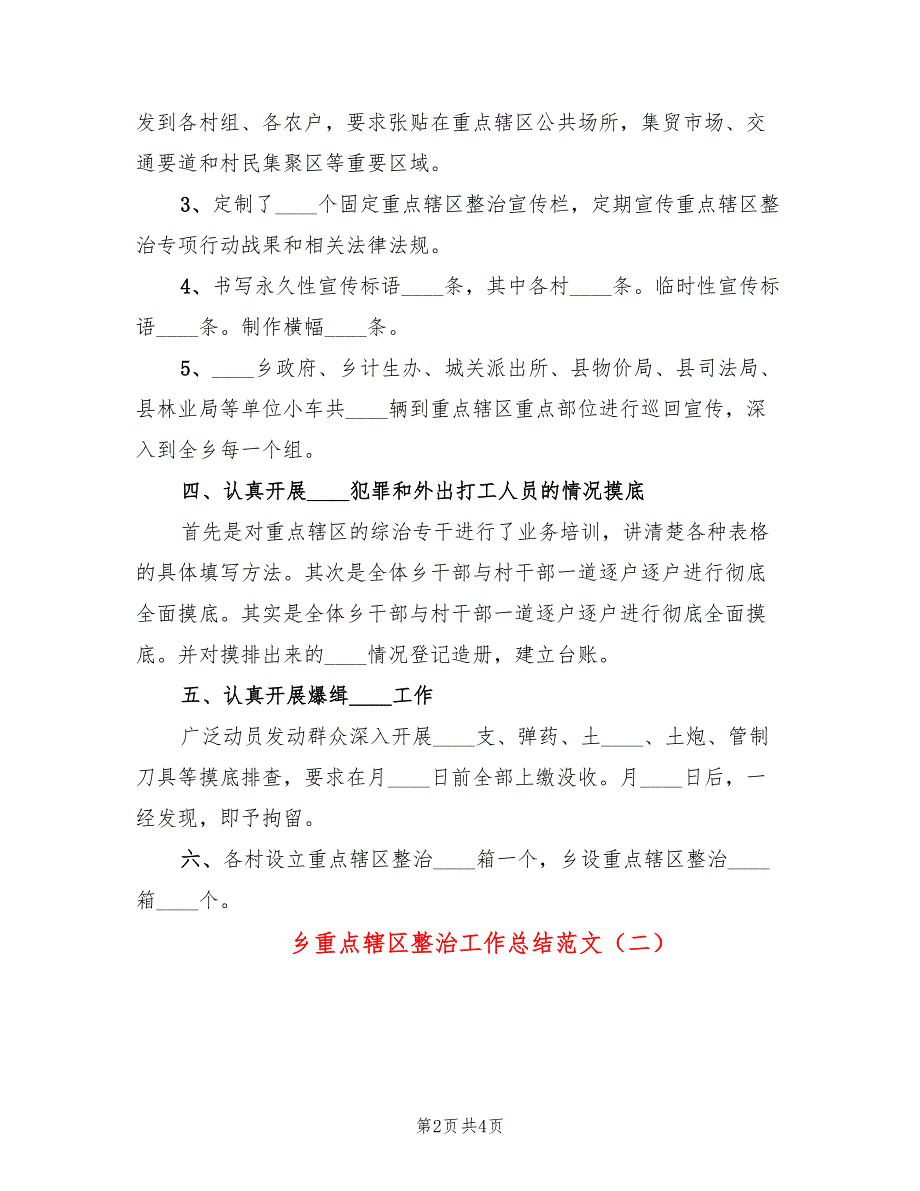 发到各村组、各农户，要求张贴在重点辖区公共场所，集贸市场、交
通要道和村民集聚区等重要区域。
3、定制了____个固定重点辖区整治宣传栏，定期宣传重点辖区整
治专项行动战果和相关法律法规。
4、书写永久性宣传标语____条，其中各村____条。临时性宣传标
语____条。制作横幅____条。
5、____乡政府、乡计生办、城关派出所、县物价局、县司法局、
县林业局等单位小车共____辆到重点辖区重点部位进行巡回宣传，深
入到全乡每一个组。
四、认真开展____犯罪和外出打工人员的情况摸底
首先是对重点辖区的综治专干进行了业务培训，讲清楚各种表格
的具体填写方法。其次是全体乡干部与村干部一道逐户逐户进行彻底
全面摸底。其实是全体乡干部与村干部一道逐户逐户进行彻底全面摸
底。并对摸排出来的____情况登记造册，建立台账。
五、认真开展爆缉____工作
广泛动员发动群众深入开展____支、弹药、土____、土炮、管制
刀具等摸底排查，要求在月____日前全部上缴没收。月____日后，一
经发现，即予拘留。
六、各村设立重点辖区整治____箱一个，乡设重点辖区整治____
箱____个。
乡重点辖区整治工作总结范文（二）
第2页共4页